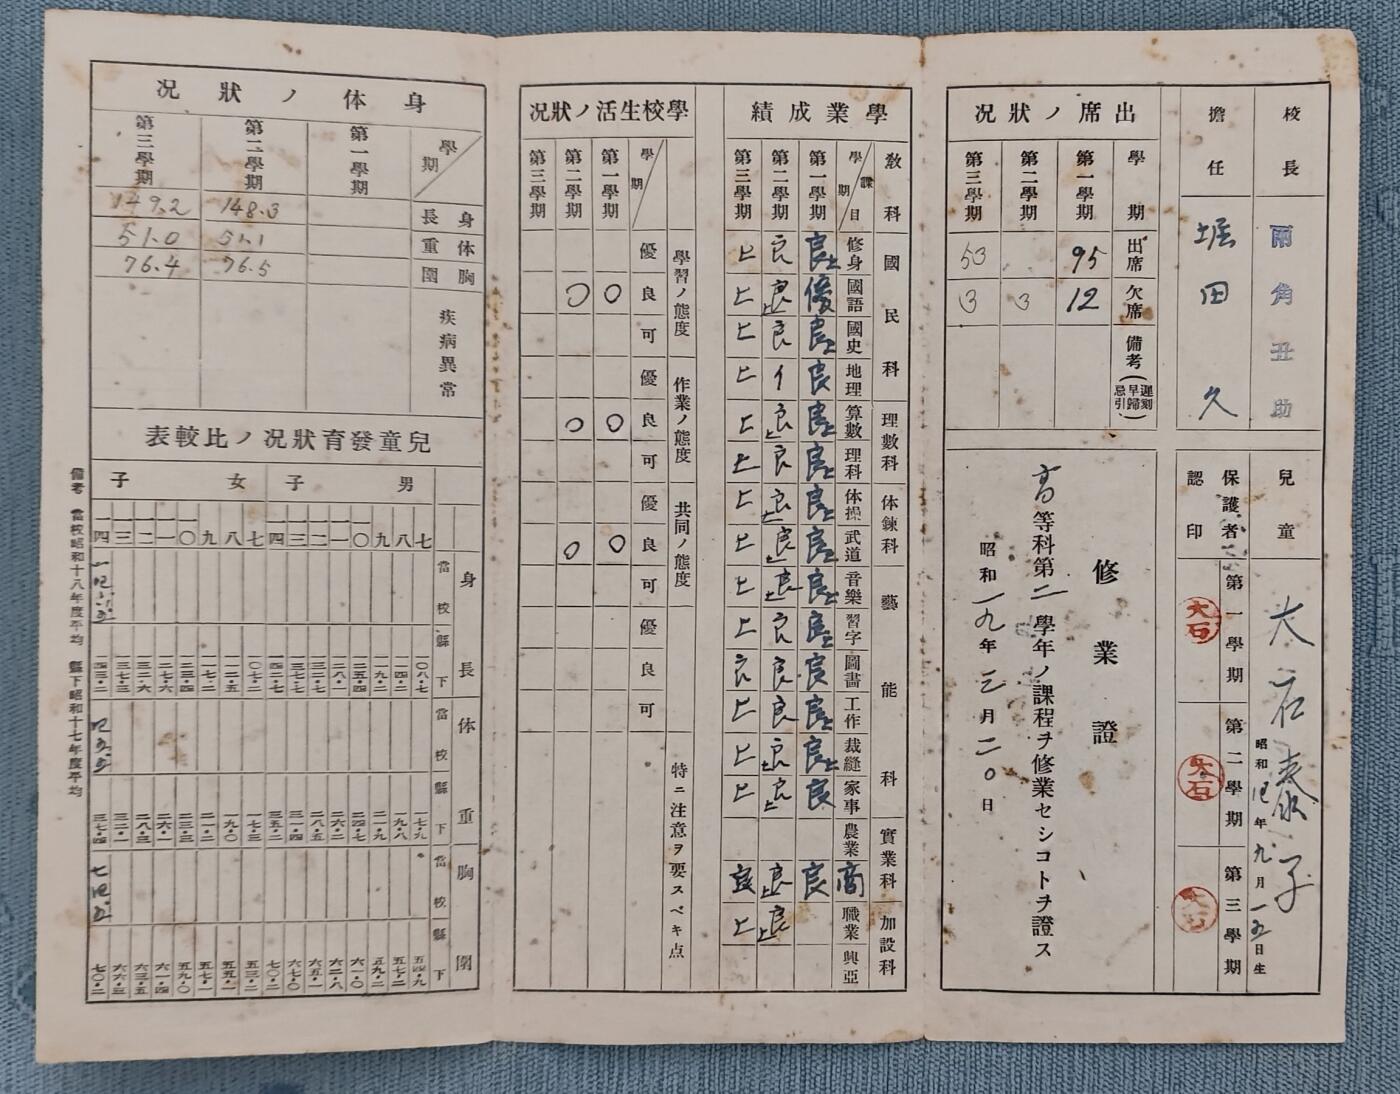 校長 雨角丑助
擔任 堀田久
兒童 大石泰子
昭和四年九月一五日生
保護者認印
第一學期 大石
第二學期 大石
第三學期 大石
出席ノ狀況
學期 出席 欠席 備考(遲刻早歸忌引)
第一學期 95 12
第二學期 3
第三學期 53 3
修業證
高等科第二學年ノ課程ヲ修業セシコトヲ證ス
昭和一九年三月二〇日
學業成績
敎科 課目 學期 第一學期 第二學期 第三學期
國民科
修身 良上 良 上
國語 優 良上 上
國史 良上 良 上
地理 良 上
理數科
算數 良上 良上 上
理科 良上 良 上
体鍊科
体操 良上 良上 上
武道 良上 良上 上
藝能科
音樂 良上 良上 上
習字 良上 良 上
圖畵 良 良 良
工作 良上 良 上
裁縫 良上 良上 上
家事 良 良上 上
實業科
農業
商 良 良上 良
加設科
職業 良上 上
興亞
學校生活ノ狀況
學期 第一學期 第二學期 第三學期
學習ノ態度
優
良 ○ ○
可
作業ノ態度
優
良 ○ ○
可
共同ノ態度
優
良 ○ ○
可
優
良
可
特ニ注意ヲ要スベキ点
身体ノ狀況
學期 第一學期 第二學期 第三學期
身長 148.3 149.2
体重 51.1 51.0
胸圍 76.5 76.4
疾病異常
兒童發育狀況ノ比較表
男子 女子
七 八 九 一〇 一一 一二 一三 一四 七 八 九 一〇 一一 一二 一三 一四
身長
當校
縣下 一〇八・七 一一四・二 一一九・二 一二五・四 一二八・一 一三二・七 一三七・七 一四二・七 一〇七・二 一一二・五 一一七・二 一二三・四 一二七・六 一三二・六 一三七・三 一四三・二
体重
當校
縣下 一七・九 一九・八 二一・九 二四・七 二六・二 二八・五 三一・四 三五・二 一七・三 一九・〇 二一・二 二三・三 二六・一 二八・三 三二・一 三七・四
胸圍
當校
縣下 五四・九 五七・二 五九・二 六一・〇 六二・八 六五・一 六七・〇 七〇・二 五三・二 五五・一 五七・一 五九・〇 六一・四 六三・五 六六・三 七〇・二
備考 當校昭和十八年度平均 縣下昭和十七年度平均